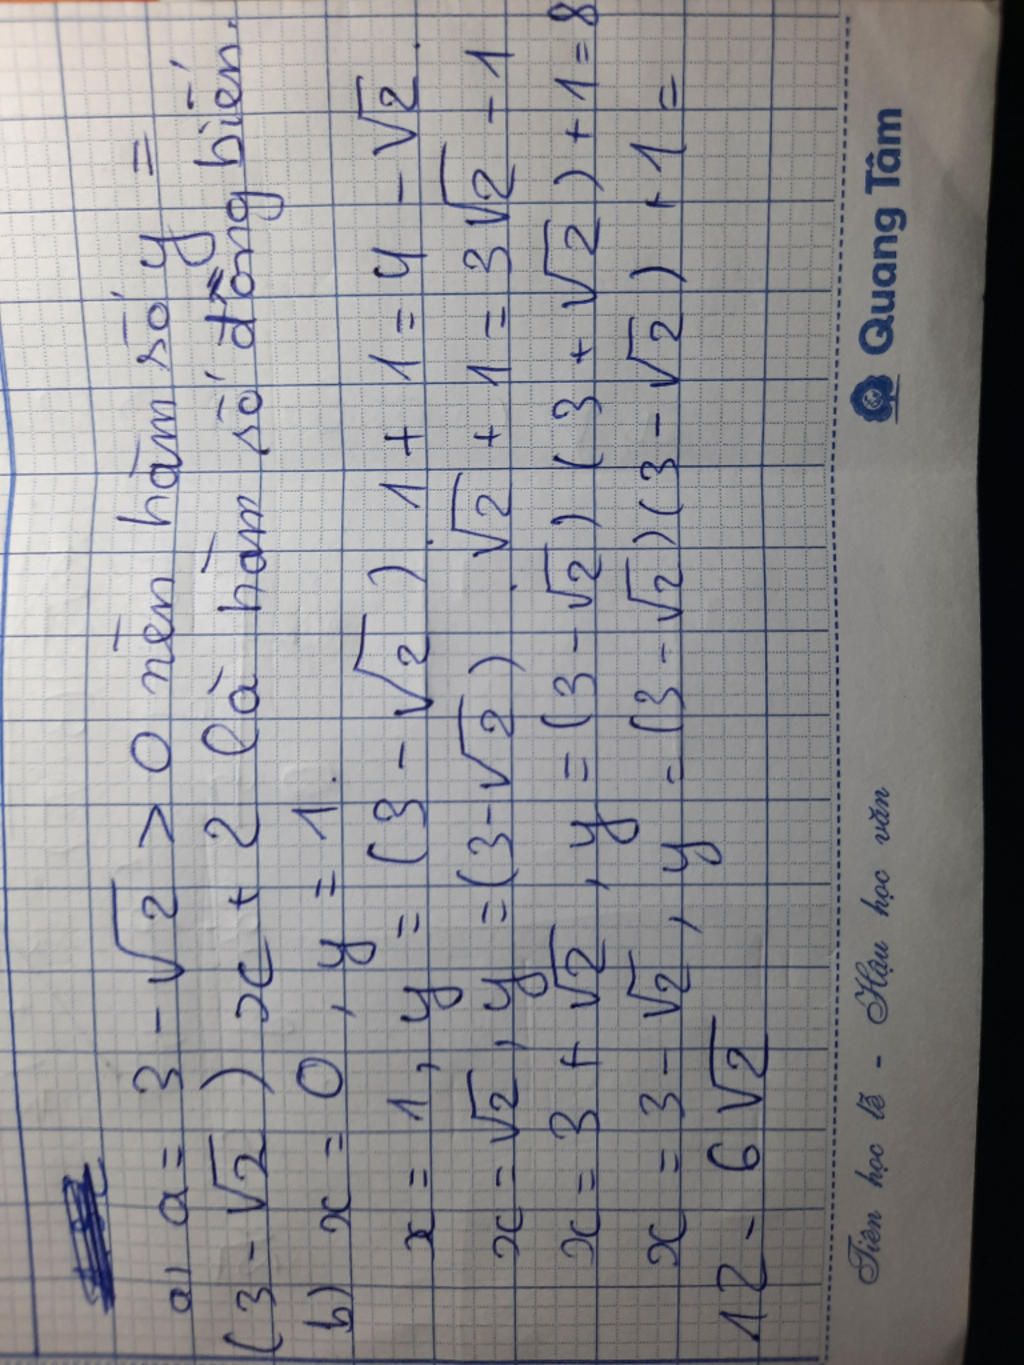 a) a = 3 - √2 > 0 nên hàm số y =
(3 - √2) x + 2 là hàm số đồng biến.
b) x = 0, y = 1.
x = 1, y = (3 - √2) 1 + 1 = 4 - √2.
x = √2, y = (3 - √2). √2 + 1 = 3√2 - 1
x = 3 + √2, y = (3 - √2) (3 + √2) + 1 = 8
x = 3 - √2, y = (3 - √2)(3 - √2) + 1 =
12 - 6√2
Tiên học lễ - Hậu học văn
Quang Tâm